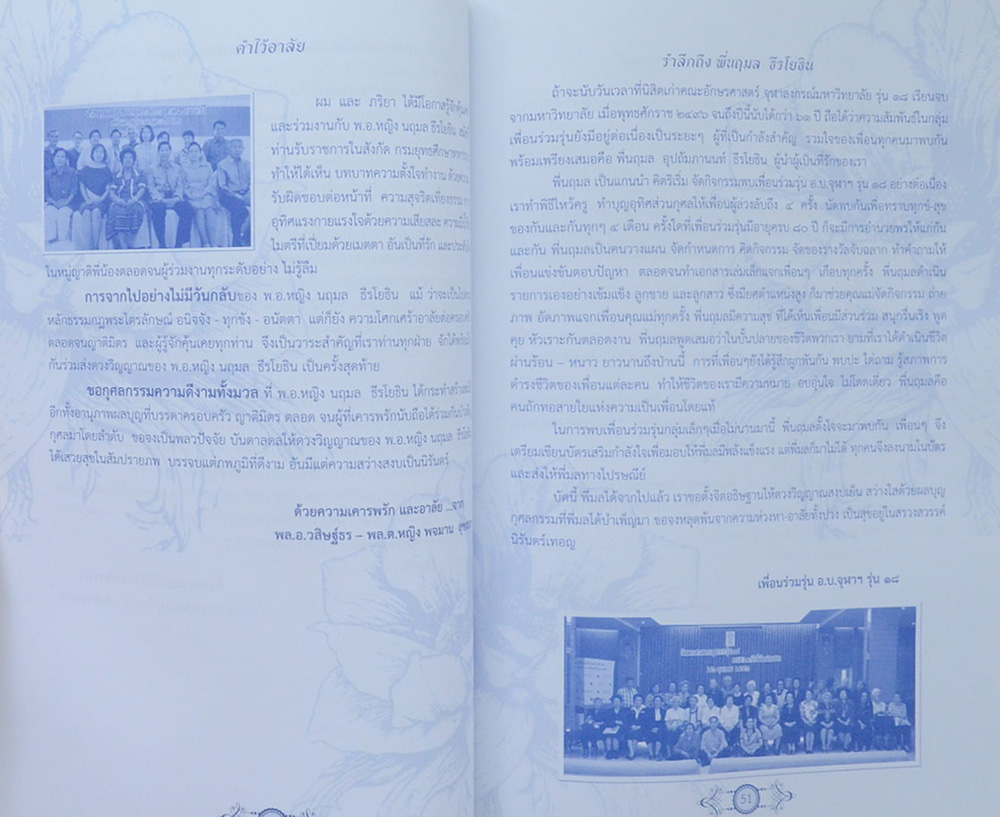 คำไว้อาลัย
ผม และ ภริยา ได้มีโอกาสรู้จักคุ้นเคย
และร่วมงานกับ พ.อ.หญิง นฤมล ธีรโยธิน
ท่านรับราชการในสังกัด กรมยุทธศึกษาทหาร
ทำให้ได้เห็น บทบาทความตั้งใจทำงาน ด้วยความ
รับผิดชอบต่อหน้าที่ ความสุจริตเที่ยงธรรม
อุทิศแรงกายแรงใจด้วยความเสียสละ ความมี
ไมตรีที่เปี่ยมด้วยเมตตา อันเป็นที่รัก และประทับใจ
ในหมู่ญาติพี่น้องตลอดจนผู้ร่วมงานทุกระดับอย่าง ไม่รู้ลืม
การจากไปอย่างไม่มีวันกลับของ พ.อ.หญิง นฤมล ธีรโยธิน แม้ ว่าจะเป็นไปตาม
หลักธรรมกฎพระไตรลักษณ์ อนิจจัง - ทุกขัง - อนัตตา แต่ก็ยัง ความโศกเศร้าอาลัยต่อครอบครัว
ตลอดจนญาติมิตร และผู้รู้จักคุ้นเคยทุกท่าน จึงเป็นวาระสำคัญที่เราท่านทุกฝ่าย จักได้พร้อมใจ
กันร่วมส่งดวงวิญญาณของ พ.อ.หญิง นฤมล ธีรโยธิน เป็นครั้งสุดท้าย
ขอกุศลกรรมความดีงามทั้งมวล ที่ พ.อ.หญิง นฤมล ธีรโยธิน ได้กระทำสร้างสม
อีกทั้งอานุภาพผลบุญที่บรรดาครอบครัว ญาติมิตร ตลอด จนผู้ที่เคารพรักนับถือได้ร่วมกันบำเพ็ญ
กุศลมาโดยลำดับ ขอจงเป็นพลวปัจจัย บันดาลดลให้ดวงวิญญาณของ พ.อ.หญิง นฤมล ธีรโยธิน
ได้เสวยสุขในสัมปรายภพ บรรจบแต่ภพภูมิที่ดีงาม อันมีแต่ความสว่างสงบเป็นนิรันดร์
ด้วยความเคารพรัก และอาลัย ...จาก
พล.อ.วสิษฐ์ธร – พล.ต.หญิง พจมาน
รำลึกถึง พี่นฤมล ธีรโยธิน
ถ้าจะนับวันเวลาที่นิสิตเก่าคณะอักษรศาสตร์ จุฬาลงกรณ์มหาวิทยาลัย รุ่น ๑๘ เรียนจบ
จากมหาวิทยาลัย เมื่อพุทธศักราช ๒๔๙๖ จนถึงปีนี้นับได้กว่า ๖๑ ปี ถือได้ว่าความสัมพันธ์ในกลุ่ม
เพื่อนร่วมรุ่นยังมีอยู่ต่อเนื่องเป็นระยะๆ ผู้ที่เป็นกำลังสำคัญ รวมใจของเพื่อนทุกคนมาพบกัน
พร้อมเพรียงเสมอคือ พี่นฤมล อุปถัมภานนท์ ธีรโยธิน ผู้นำผู้เป็นที่รักของเรา
พี่นฤมล เป็นแกนนำ คิดริเริ่ม จัดกิจกรรมพบเพื่อนร่วมรุ่น อ.บ.จุฬาฯ รุ่น ๑๘ อย่างต่อเนื่อง
เราทำพิธีไหว้ครู ทำบุญอุทิศส่วนกุศลให้เพื่อนผู้ล่วงลับถึง ๔ ครั้ง นัดพบกันเพื่อทราบทุกข์-สุข
ของกันและกันทุกๆ ๔ เดือน ครั้งใดที่เพื่อนร่วมรุ่นมีอายุครบ ๘๐ ปี ก็จะมีการอำนวยพรให้แก่กัน
และกัน พี่นฤมลเป็นคนวางแผน จัดกำหนดการ คิดกิจกรรม จัดของรางวัลจับฉลาก ทำคำถามให้
เพื่อนแข่งขันตอบปัญหา ตลอดจนทำเอกสารเล่มเล็กแจกเพื่อนๆ เกือบทุกครั้ง พี่นฤมลดำเนิน
รายการเองอย่างเข้มแข็ง ลูกชาย และลูกสาว ซึ่งมียศตำแหน่งสูง ก็มาช่วยคุณแม่จัดกิจกรรม ถ่าย
ภาพ อัดภาพแจกเพื่อนคุณแม่ทุกครั้ง พี่นฤมลมีความสุข ที่ได้เห็นเพื่อนมีส่วนร่วม สนุกรื่นเริง พูด
คุย หัวเราะกันตลอดงาน พี่นฤมลพูดเสมอว่าในบั้นปลายของชีวิตพวกเรา ยามที่เราได้ดำเนินชีวิต
ผ่านร้อน – หนาว ยาวนานถึงป่านนี้ การที่เพื่อนๆยังได้รู้สึกผูกพันกัน พบปะ ไต่ถาม รู้สภาพการ
ดำรงชีวิตของเพื่อนแต่ละคน ทำให้ชีวิตของเรามีความหมาย อบอุ่นใจ ไม่โดดเดี่ยว พี่นฤมลคือ
คนถักทอสายใยแห่งความเป็นเพื่อนโดยแท้
ในการพบเพื่อนร่วมรุ่นกลุ่มเล็กๆเมื่อไม่นานมานี้ พี่นฤมลตั้งใจจะมาพบกัน เพื่อนๆ จึง
เตรียมเขียนบัตรเสริมกำลังใจเพื่อมอบให้พี่มลมีพลังแข็งแรง แต่พี่มลก็มาไม่ได้ ทุกคนจึงลงนามในบัตร
และส่งให้พี่มลทางไปรษณีย์
บัดนี้ พี่มลได้จากไปแล้ว เราขอตั้งจิตอธิษฐานให้ดวงวิญญาณสงบเย็น สว่างไสวด้วยผลบุญ
กุศลกรรมที่พี่มลได้บำเพ็ญมา ขอจงหลุดพ้นจากความห่วงหา-อาลัยทั้งปวง เป็นสุขอยู่ในสรวงสวรรค์
นิรันดร์เทอญ
เพื่อนร่วมรุ่น อ.บ.จุฬาฯ รุ่น ๑๘
51